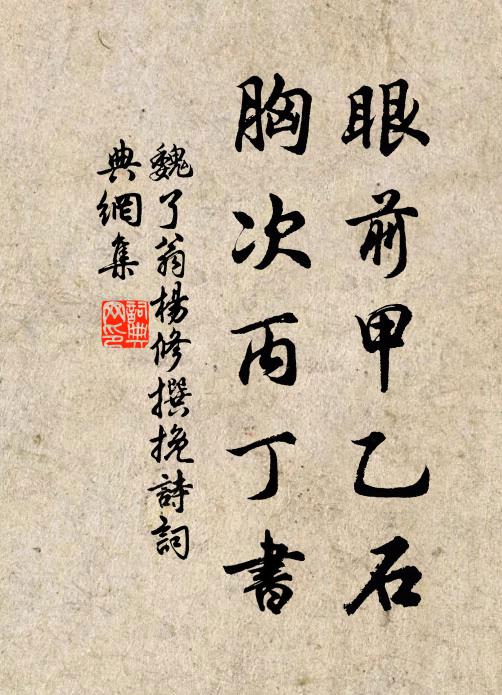 眼前甲乙石
胸次丙丁書
魏了翁楊修撰挽詩詞
典網集
詞典網印